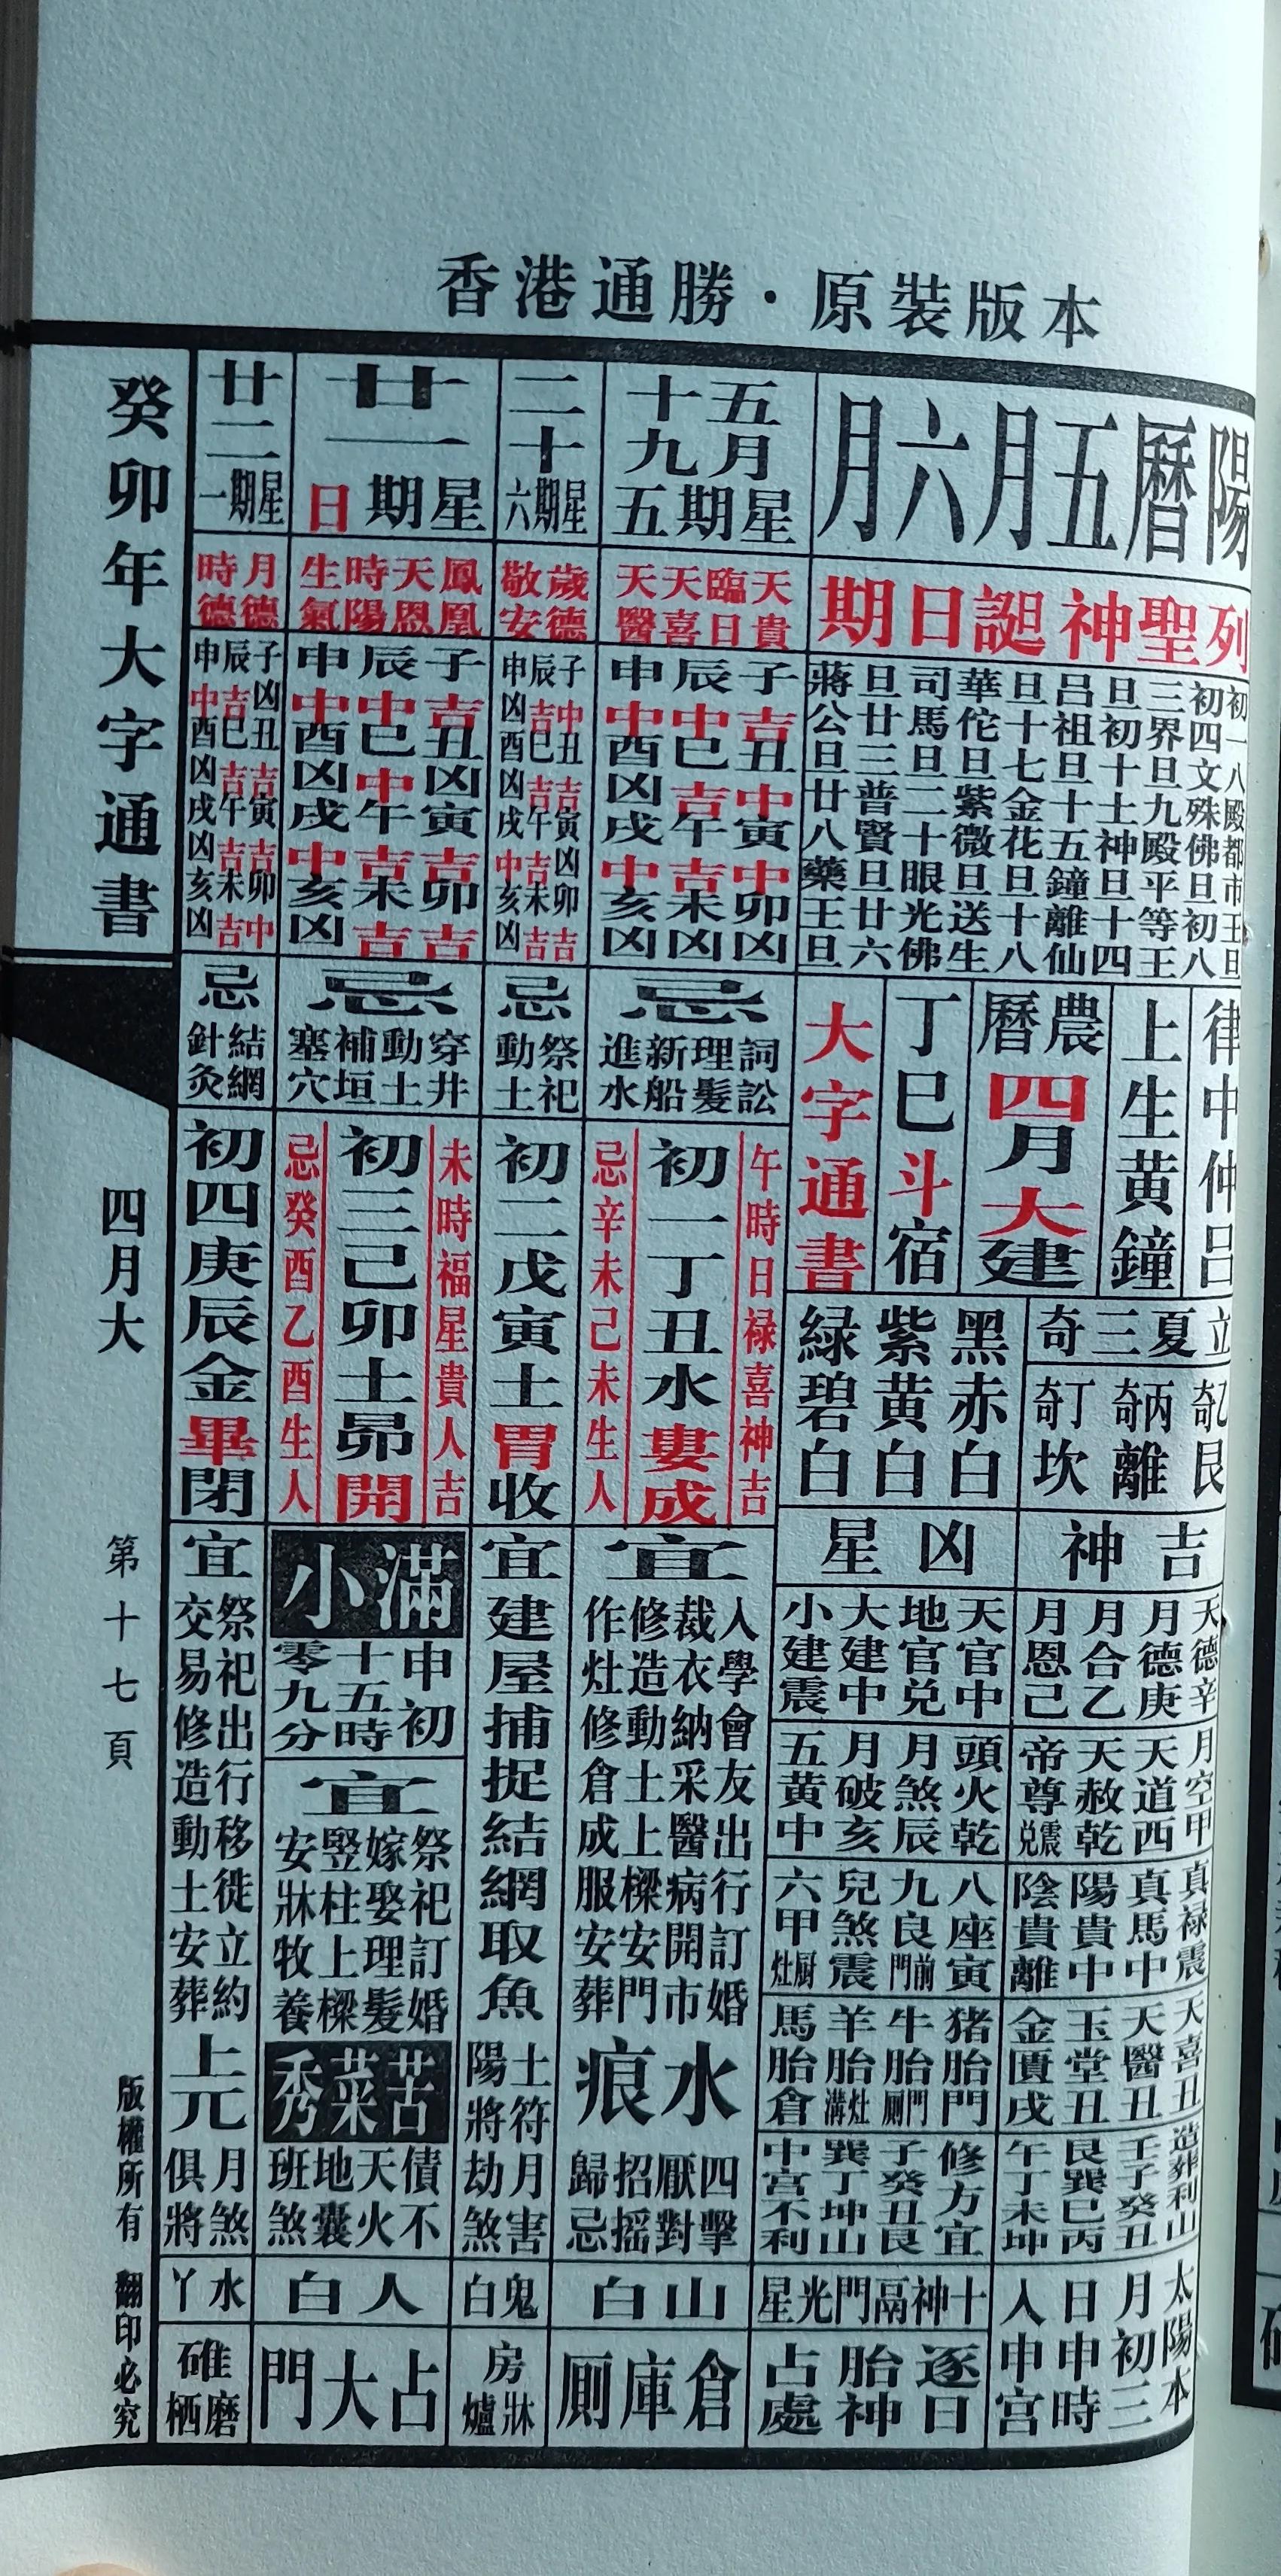 香港通勝·原裝版本
陽曆五月六月
列聖神誕日期
初一八殿都市王旦
初四文殊佛旦初八
三界旦九殿平等王
旦初十土神旦十四
呂祖旦十五鐘離仙
旦十七金花旦十八
華佗旦紫微旦送生
司馬旦二十眼光佛
旦廿三普賢旦廿六
蔣公旦廿八藥王旦
律中仲呂
上生黃鐘
農曆四月大建
丁巳斗宿
大字通書
立夏三奇
乙奇艮
丙奇離
丁奇坎
黑赤白
紫黃白
緑碧白
吉神
天德辛
月德庚
月合乙
月恩己
月空甲
天道西
天赦乾
帝尊震兌
真禄震
真馬中
陽貴中
陰貴離
天喜丑
天醫丑
玉堂丑
金匱戌
造葬利山
壬子癸丑
艮巽巳丙
午丁未坤
太陽本
月初三
日申時
入申宮
凶星
天官中
地官兌
大建中
小建震
頭火乾
月煞辰
月破亥
五黃中
八座寅
九良門前
兒煞震
六甲厨灶
猪胎門
牛胎門厠
羊胎灶溝
馬胎倉
修方宜
子癸丑艮
巽丁坤山
中宮不利
十神鬲門光星
逐日胎神占處
五月十九
星期五
天貴
臨日
天喜
天醫
子吉丑中寅中卯凶
辰中巳吉午吉未凶
申中酉凶戌中亥凶
忌
詞訟
理髮
新船
進水
午時日禄喜神吉
初一丁丑水婁成
忌辛未己未生人
宜
入學會友出行訂婚
裁衣納采醫病開市
修造動土上樑安門
作灶修倉成服安葬
水痕
四擊
厭對
招摇
歸忌
山白
倉庫厠
二十
星期六
歲德
敬安
子中丑吉寅凶卯吉
辰吉巳吉午吉未吉
申凶酉凶戌中亥凶
忌
祭祀
動土
初二戊寅土胃收
宜
建屋捕捉結網取魚
土符月害
陽將劫煞
鬼白
房牀爐
廿一
星期日
鳳凰
天恩
時陽
生氣
子吉丑凶寅吉卯吉
辰中巳中午吉未吉
申中酉凶戌中亥凶
忌
穿井
動土
補垣
塞穴
未時福星貴人吉
初三己卯土昴開
忌癸酉乙酉生人
小滿
申初
十五時
零九分
宜
祭祀訂婚
嫁娶理髮
竪柱上樑
安牀牧養
苦菜秀
債不
天火
地囊
班煞
人白
占大門
廿二
星期一
月德
時德
子凶丑吉寅吉卯中
辰吉巳吉午吉未吉
申中酉凶戌凶亥凶
忌
結網
針灸
初四庚辰金畢閉
宜
祭祀出行移徙立約
交易修造動土安葬
上元
月煞
俱將
水丫
碓磨栖
癸卯年大字通書
四月大
第十七頁
版權所有 翻印必究